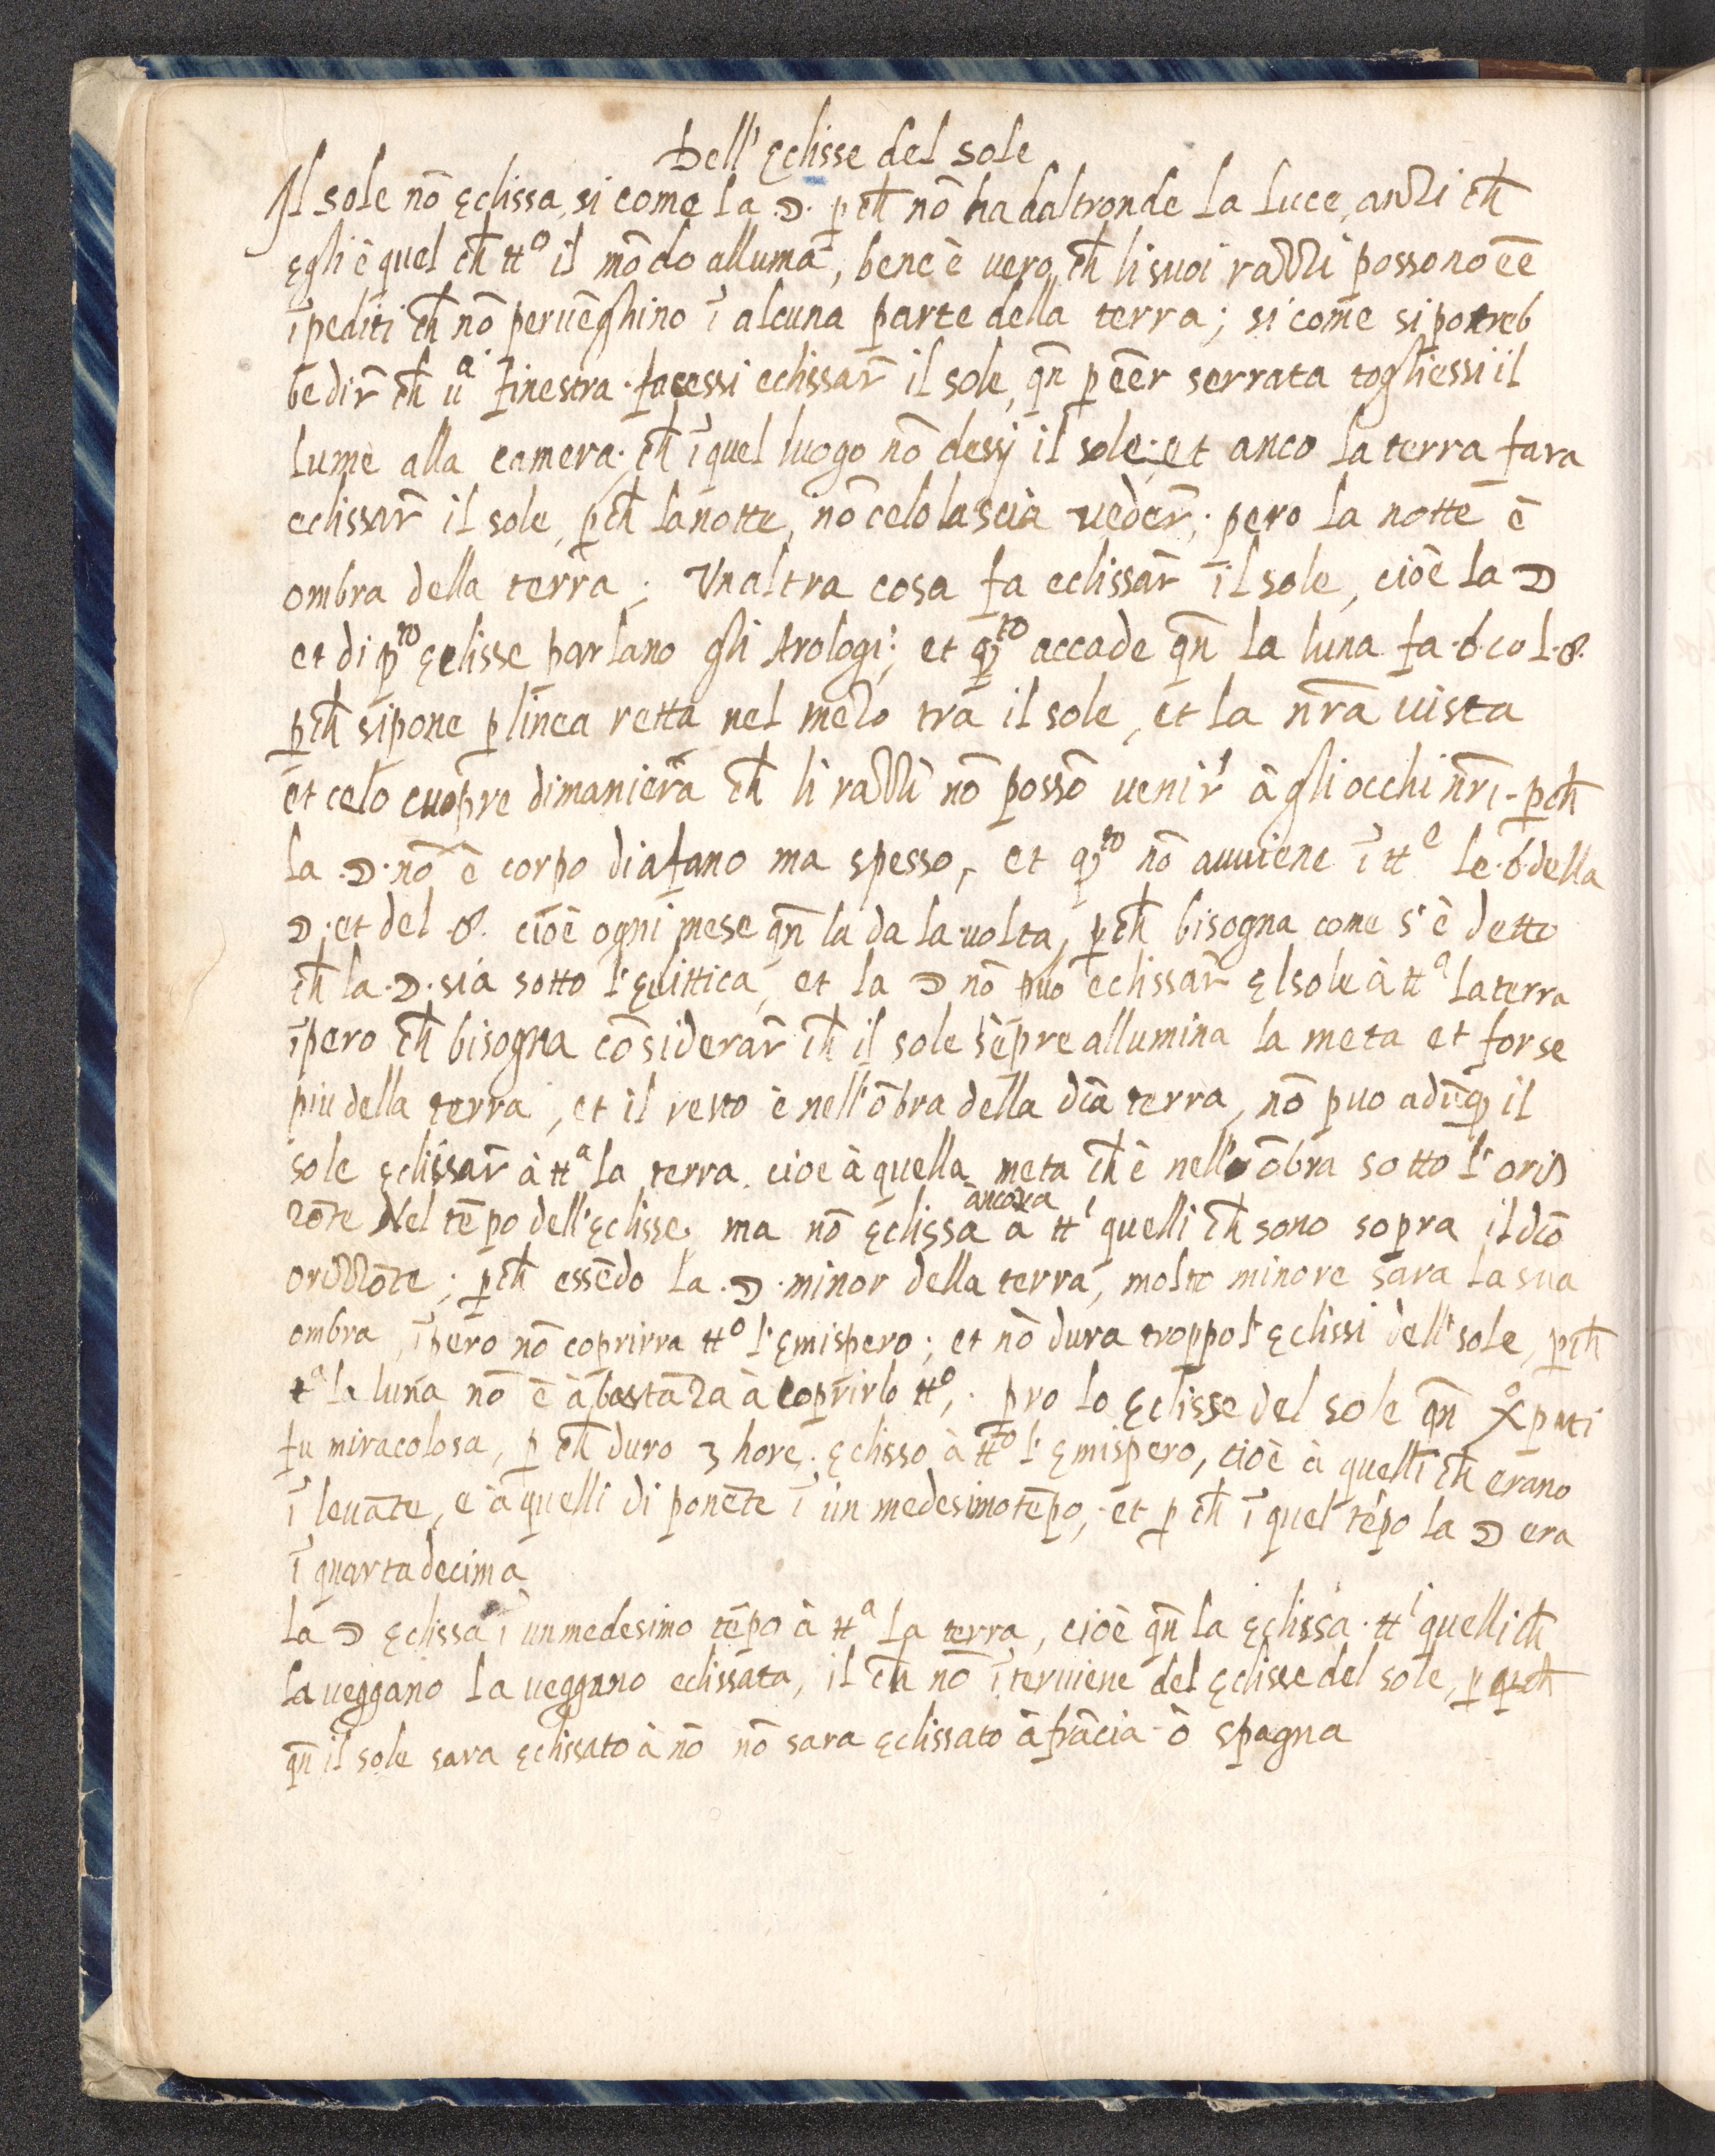 Dell' Eclisse del sole
Il sole nō Eclissa, si come la .☽. ꝑch̄ nō ha daltronde la luce, anzi ch̄
Egli è quel ch̄ ttº il mōdo alluma, bene è uero, ch̄ li suoi razzi possono eē
īpediti ch̄ nō peruēghino ī alcuna parte della terra; si come si potreb
be dir̄ ch̄ uª finestra facessi eclissar̄ il sole, qn̄ ꝑ eēr serrata togliessi il
lume alla camera. ch̄ ī quel luogo nō dessj il sole; et anco la terra fara
eclissar̄ il sole, ꝑch̄ la notte, nō celo lascia ueder̄; pero la notte è
ombra della terra; Vnaltra cosa fa eclissar̄ il sole, cioè la ☽
et di qᵗᵒ Eclisse parlano gli Arologi; et qᵗᵒ accade qn̄ la luna fa .☌. col .☉.
ꝑch̄ si pone ꝑ linea retta nel mezo tra il sole, et la nr̄a uista
et celo cuopre dimaniera ch̄ li razzi nō possō uenir' à gli occhi nr̄i. ꝑch̄
la .☽. nō è corpo diafano ma spesso, et qᵗᵒ nō auuiene ī ttᵉ le .☌. della
☽. et del .☉. cioè ogni mese qn̄ la da la uolta, ꝑch̄ bisogna come s'è detto
ch̄ la .☽. sia sotto l'Eclittica, et la ☽ nō puo eclissar̄ El sole à ttª la terra
īpero ch̄ bisogna cōsiderar̄ ch̄ il sole sēpre allumina la meta et forse
piu della terra, et il resto è nell'ōbra della dc̄a terra, nō puo adūq̄ il
sole Eclissar̄ à ttª la terra. cioe à quella meta ch̄ è nell' ōbra sotto l'oriz
zōte Nel tēpo dell'Eclisse. ma nō Eclissa àncora à ttⁱ quelli ch̄ sono sopra il dc̄o
orizzōte; ꝑch̄ essēdo la .☽. minor della terra, molto minore sara la sua
ombra, īpero nō coprirra ttº l'Emispero; et nō dura troppo l'Eclissi dell' sole, ꝑch̄
tª la luna nō è à bastāza à coprirlo ttº; ꝑro lo Eclisse del sole qn̄ Xº pati
fu miracolosa, ꝑ ch̄ duro 3 hore. Eclisso à ttº l'Emispero, cioè à quelli ch̄ erano
ī leuāte, e à quelli di ponēte ī un medesimo tēpo, et ꝑ ch̄ ī quel tēpo la ☽ era
ī quartadecima
La ☽ Eclissa ī un medesimo tēpo à ttª la terra, cioè qn̄ la Eclissa. ttⁱ quelli ch̄
la ueggano la ueggano eclissata, il ch̄ nō īteruiene del Eclisse del sole, ꝑch̄
qn̄ il sole sara Eclissato à nō nō sara Eclissato à frācia ò spagna